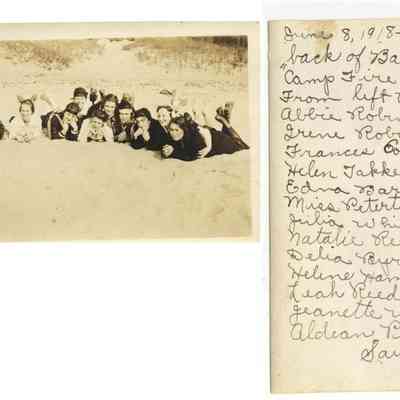 June 8, 1918-
"back of Ba
Camp Fire
From left
Abbie Robin
Irene Rob
Frances
Helen Takke
Edna Bar
Miss Petert
Julia Whi
Natalie Re
Delia Bur
Helene Ham
Leah Reed
Jeanette
Aldean
Sau